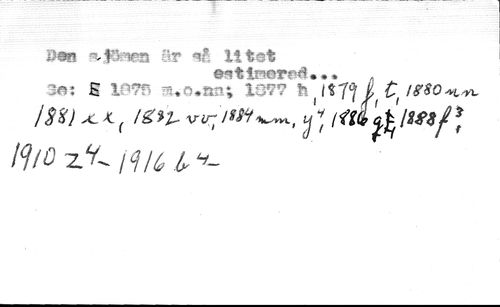 Den sjömen är så litet
estimered...
Se: E 1875 m.o.nn; 1877 h, 1879 f, t, 1880 nn
1881 xx, 1882 vv, 1884 mm, y⁴, 1886 g 1888 f³.
1910 z⁴ - 1916 b⁴ -